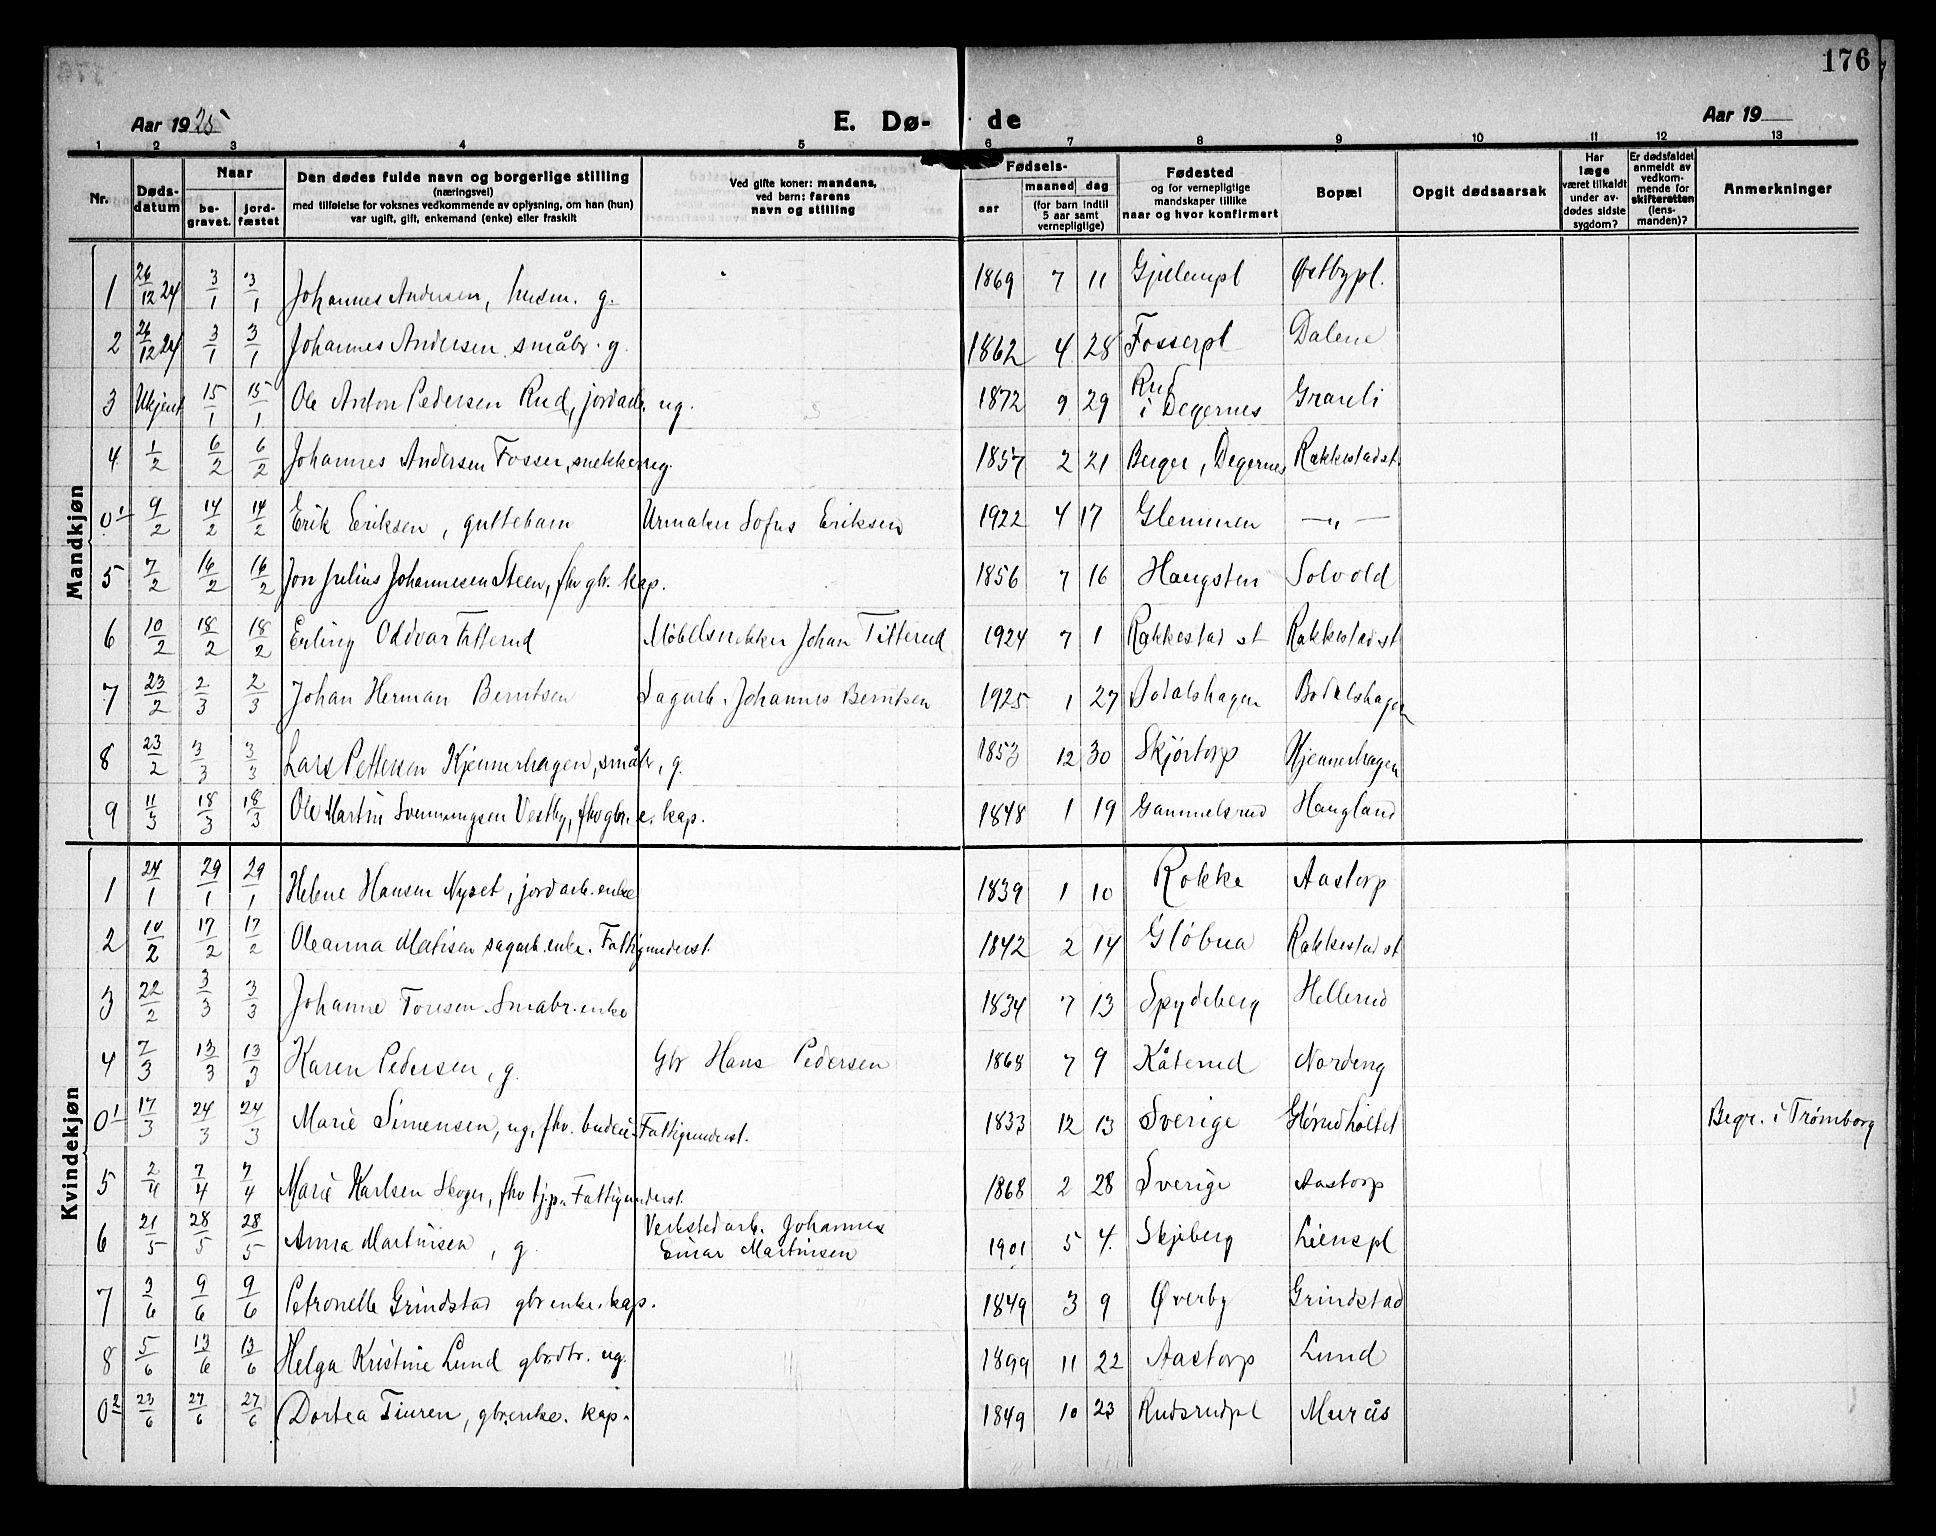 176
Aar 1925
E. Dø-
de
Aar 19
1 2 3 4 5 6 7 8 9 10 11 12 13
Nr.
Døds-
datum
Naar
be-
gravet.
jord-
fæstet
Den dødes fulde navn og borgerlige stilling
(næringsvei)
med tilføielse for voksnes vedkommende av oplysning, om han (hun)
var ugift, gift, enkemand (enke) eller fraskilt
Ved gifte koner: mandens,
ved barn: farens
navn og stilling
Fødsels-
aar
maaned dag
(for barn indtil
5 aar samt
vernepligtige)
Fødested
og for vernepligtige
mandskaper tillike
naar og hvor konfirmert
Bopæl
Opgit dødsaarsak
Har
læge
været tilkaldt
under av-
dødes sidste
sygdom?
Er dødsfaldet
anmeldt av
vedkom-
mende for
skifteretten
(lens-
manden)?
Anmerkninger
Mandkjøn
1 26/12 24 3/1 3/1 Johannes Andersen, husm. g. 1869 7 11 Østbypl.
2 26/12 24 3/1 3/1 Johannes Andersen småbr. g. 1862 4 28 Fosserpl Dalene
3 Ukjent 15/1 15/1 Ole Anton Pedersen Rud, jordarb. ug. 1872 9 29 Rud
i Degernes Graveli
4 1/2 6/2 6/2 Johannes Andersen Fosser, snekker ug. 1857 2 21 Berger, Degernes Rakkestad st.
0¹ 9/2 14/2 14/2 Erik Eriksen, guttebarn Urmaker Sofus Eriksen 1922 4 17 Glemmen —„—
5 7/2 16/2 16/2 Jon Julius Johannesen Steen, fhv gbr. kap. 1856 7 16 Haugsten Solvold
6 10/2 18/2 18/2 Erling Oddvar Titterud Møbelsnekker Johan Titterud 1924 7 1 Rakkestad st Rakkestad st
7 23/2 2/3 2/3 Johan Herman Berntsen Sagarb. Johannes Berntsen 1925 1 27 Bodalshagen Bodalshagen
8 23/2 3/3 3/3 Lars Pettersen Kjennerhagen, småbr, g. 1853 12 30 Skjørtorp Kjennerhagen
9 11/3 18/3 18/3 Ole Martin Svenningsen Vestby, fhv gbr. e. kap. 1848 1 19 Gammelsrud Haugland
Kvindekjøn
1 24/1 29/1 29/1 Helene Hansen Nyset, jordarb. enke 1839 1 10 Rokke Aastorp
2 10/2 17/2 17/2 Oleanna Matisen sagarb. enke. Fattigunderst. 1842 2 14 Gløbua Rakkestad st
3 22/2 3/3 3/3 Johanne Tonsen. Småbr. enke 1834 7 13 Spydeberg Hellerud
4 7/3 13/3 13/3 Karen Pedersen, g. Gbr Hans Pedersen 1868 7 9 Kåterud Nordeng
0¹ 17/3 24/3 24/3 Marie Simensen, ug, fhv. budeie. Fattigunderst. 1833 12 13 Sverige Begr. i Trømborg
5 2/4 7/4 7/4 Marie Karlsen Skoger, fhv tj.p. Fattigunderst. 1868 2 28 Sverige Aastorp
6 21/5 28/5 28/5 Anna Martinsen, g. Verkstedarb. Johannes
Einar Martinsen 1901 5 4. Skjeberg Lienspl
7 3/6 9/6 9/6 Petronelle Grindstad gbr enke. kap. 1849 3 9 Øverby Grindstad
8 5/6 13/6 13/6 Helga Kristine Lund gbr.dtr. ug. 1899 11 22 Aastorp Lund
0² 23/6 27/6 27/6 Dortea Tiuren, gbr.enke. kap. 1849 10 23 Rudsrudpl Murås